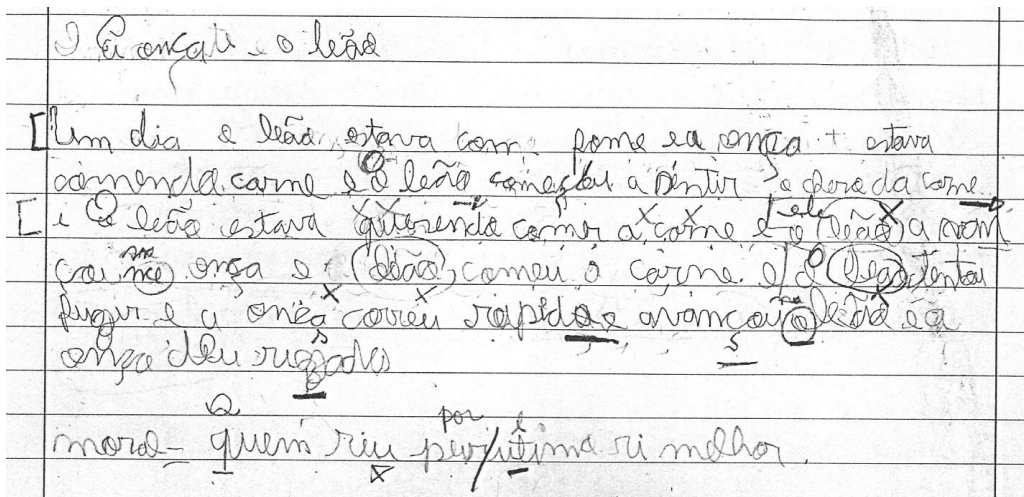 A onça e o leão
Um dia o leão estava com fome e a onça estava
comendo carne e o leão começou a sentir o chero da carne
e O leão estava querendo comer a carne e o ele leão avan
çou na nce onça e leão comeu o carne e O leão tentou
fugir e a onça correu rapido e avançou na o leão e a
onça deu rizada
moral- quem riu por utimo ri melhor.